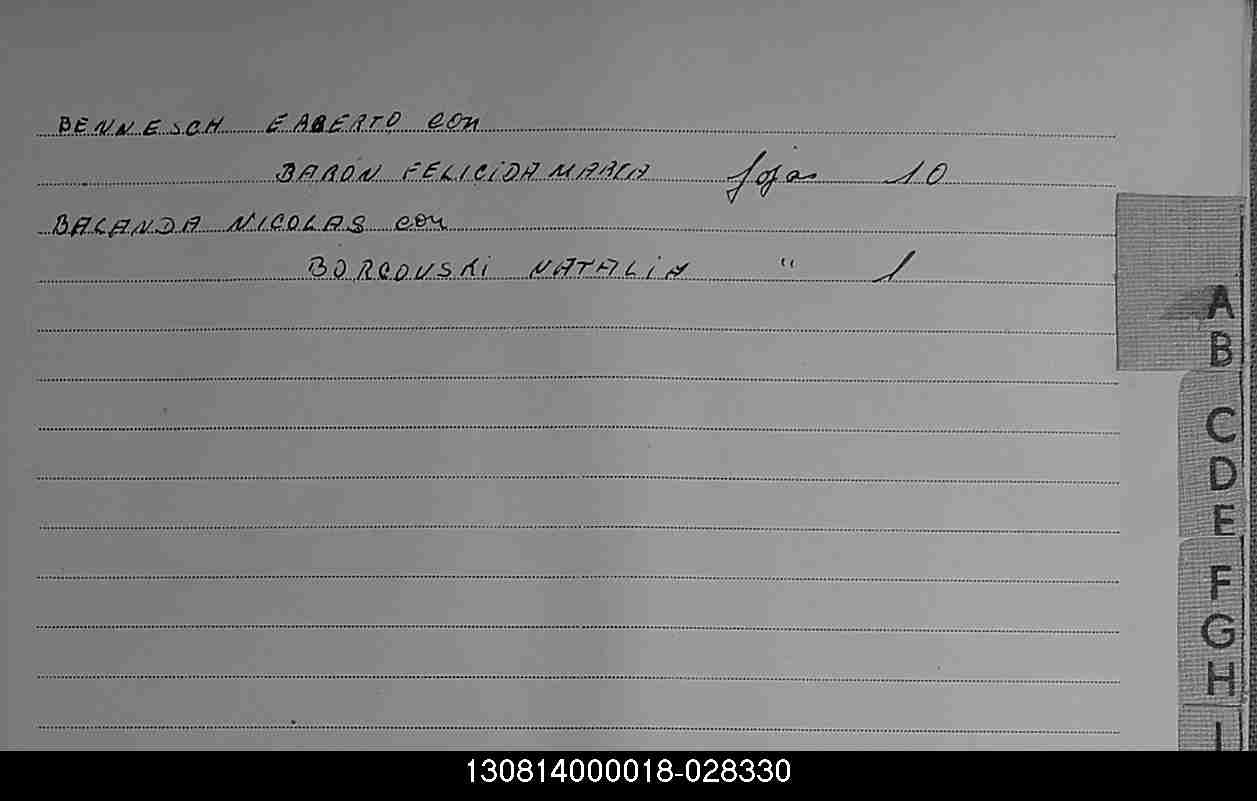 BENNESCH EABERTO con
BARON FELICIDA MARIA fojas 10
BALANDA NICOLAS con
BORCOVSKI NATALIA " 1
A
B
C
D
E
F
G
H
I
130814000018-028330